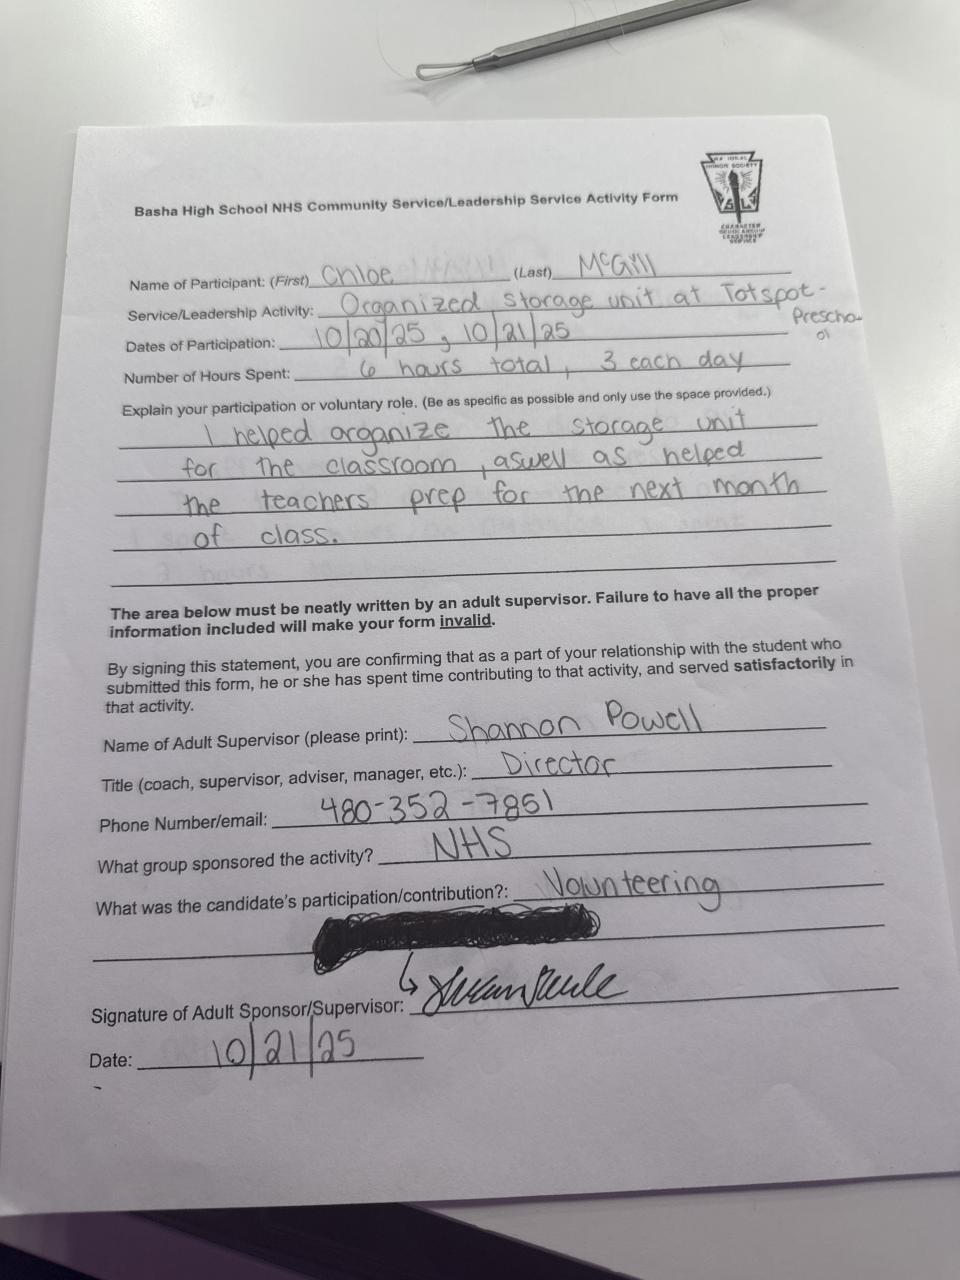 NATIONAL
HONOR SOCIETY
CHARACTER
SCHOLARSHIP
LEADERSHIP
SERVICE
Basha High School NHS Community Service/Leadership Service Activity Form
Name of Participant: (First) Chloe (Last) McGill
Service/Leadership Activity: Organized storage unit at Totspot-
Prescho
ol
Dates of Participation: 10/20/25, 10/21/25
Number of Hours Spent: 6 hours total, 3 each day
Explain your participation or voluntary role. (Be as specific as possible and only use the space provided.)
I helped organize the storage unit
for the classroom, aswell as helped
the teachers prep for the next month
of class.
The area below must be neatly written by an adult supervisor. Failure to have all the proper
information included will make your form invalid.
By signing this statement, you are confirming that as a part of your relationship with the student who
submitted this form, he or she has spent time contributing to that activity, and served satisfactorily in
that activity.
Name of Adult Supervisor (please print): Shannon Powell
Title (coach, supervisor, adviser, manager, etc.): Director
Phone Number/email: 480-352-7851
What group sponsored the activity? NHS
What was the candidate's participation/contribution?: Volunteering
Signature of Adult Sponsor/Supervisor:
Date: 10/21/25